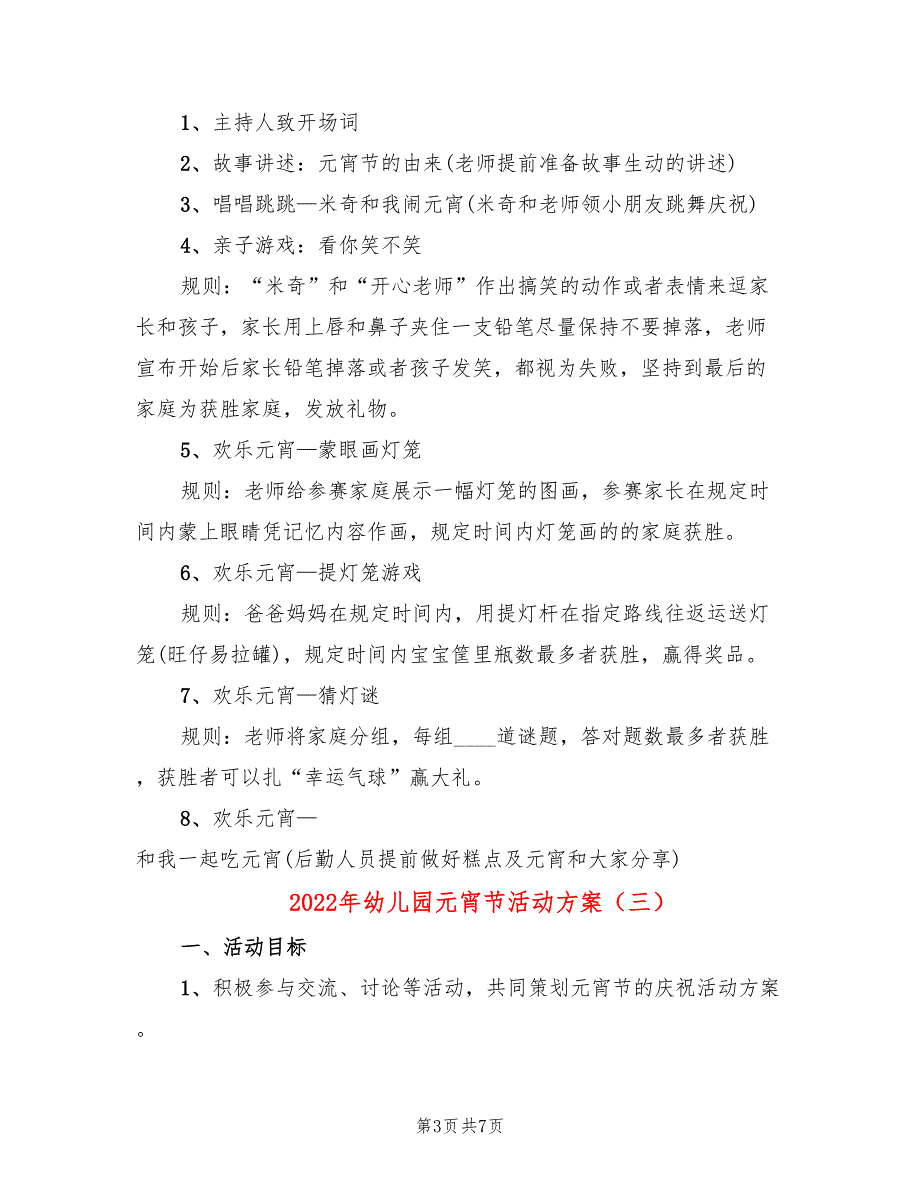 1、主持人致开场词
2、故事讲述：元宵节的由来(老师提前准备故事生动的讲述)
3、唱唱跳跳—米奇和我闹元宵(米奇和老师领小朋友跳舞庆祝)
4、亲子游戏：看你笑不笑
规则：“米奇”和“开心老师”作出搞笑的动作或者表情来逗家
长和孩子，家长用上唇和鼻子夹住一支铅笔尽量保持不要掉落，老师
宣布开始后家长铅笔掉落或者孩子发笑，都视为失败，坚持到最后的
家庭为获胜家庭，发放礼物。
5、欢乐元宵—蒙眼画灯笼
规则：老师给参赛家庭展示一幅灯笼的图画，参赛家长在规定时
间内蒙上眼睛凭记忆内容作画，规定时间内灯笼画的的家庭获胜。
6、欢乐元宵—提灯笼游戏
规则：爸爸妈妈在规定时间内，用提灯杆在指定路线往返运送灯
笼(旺仔易拉罐)，规定时间内宝宝筐里瓶数最多者获胜，赢得奖品。
7、欢乐元宵—猜灯谜
规则：老师将家庭分组，每组____道谜题，答对题数最多者获胜
，获胜者可以扎“幸运气球”赢大礼。
8、欢乐元宵—
和我一起吃元宵(后勤人员提前做好糕点及元宵和大家分享)
2022年幼儿园元宵节活动方案（三）
一、活动目标
1、积极参与交流、讨论等活动，共同策划元宵节的庆祝活动方案
。
第3页共7页